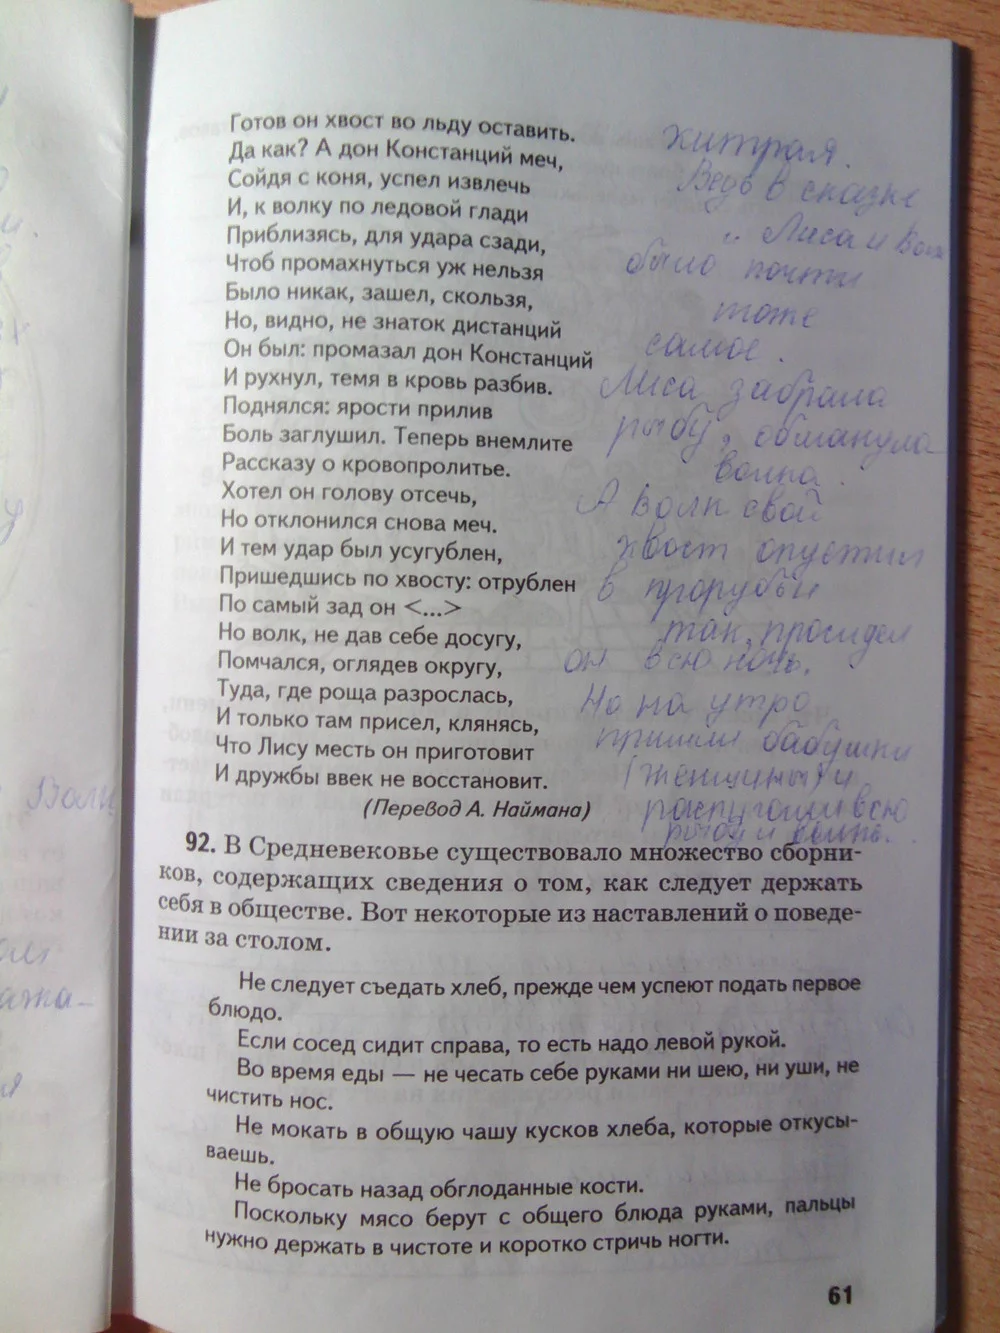 Готов он хвост во льду оставить.
Да как? А дон Констанций меч,
Сойдя с коня, успел извлечь
И, к волку по ледовой глади
Приблизясь, для удара сзади,
Чтоб промахнуться уж нельзя
Было никак, зашел, скользя,
Но, видно, не знаток дистанций
Он был: промазал дон Констанций
И рухнул, темя в кровь разбив.
Поднялся: ярости прилив
Боль заглушил. Теперь внемлите
Рассказу о кровопролитье.
Хотел он голову отсечь,
Но отклонился снова меч.
И тем удар был усугублен,
Пришедшись по хвосту: отрублен
По самый зад он <...>
Но волк, не дав себе досугу,
Помчался, оглядев округу,
Туда, где роща разрослась,
И только там присел, клянясь,
Что Лису месть он приготовит
И дружбы ввек не восстановит.
(Перевод А. Наймана)
хитрая.
Ведь в сказке
"Лиса и Волк
было почти
тоже
самое.
Лиса забрала
рыбу, обманула
волка.
А Волк свой
хвост опустил
в прорубь и
так, просидел
он всю ночь.
Но на утро
пришли бабушки
(женщины) и
распугали всю
рыбу и волка.
92. В Средневековье существовало множество сборни-
ков, содержащих сведения о том, как следует держать
себя в обществе. Вот некоторые из наставлений о поведе-
нии за столом.
Не следует съедать хлеб, прежде чем успеют подать первое
блюдо.
Если сосед сидит справа, то есть надо левой рукой.
Во время еды — не чесать себе руками ни шею, ни уши, не
чистить нос.
Не мокать в общую чашу кусков хлеба, которые откусы-
ваешь.
Не бросать назад обглоданные кости.
Поскольку мясо берут с общего блюда руками, пальцы
нужно держать в чистоте и коротко стричь ногти.
61
Волк